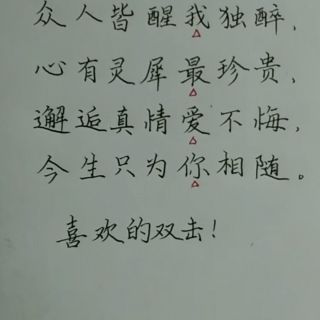 众人皆醒我独醉，
心有灵犀最珍贵，
邂逅真情爱不悔，
今生只为你相随。
喜欢的双击！